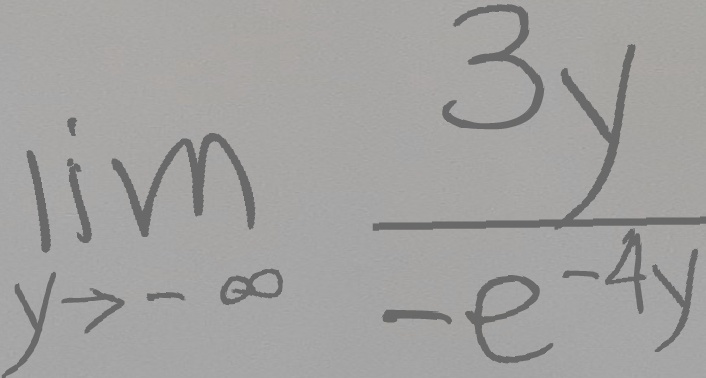 \lim_{y \to -\infty} \frac{3y}{-e^{-4y}}